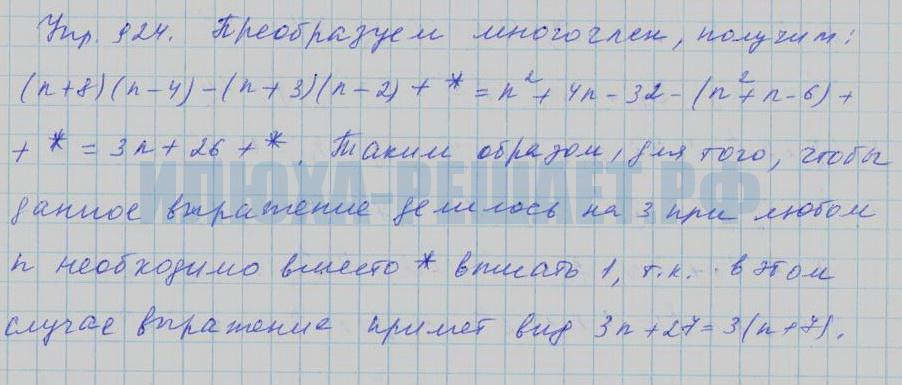 Упр. 924. Преобразуем многочлен, получим:
(n+8)(n-4)-(n+3)(n-2)+*=n²+4n-32-(n²+n-6)+
+*=3n+26+*. Таким образом, для того, чтобы
ИЛЮХА-РЕШАЕТ.РФ
данное выражение делилось на 3 при любом
n необходимо вместо * вписать 1, т.к. в этом
случае выражение примет вид 3n+27=3(n+7).